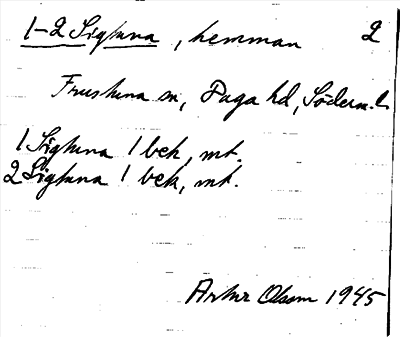 1-2 Sigtuna, hemman 2
Frustuna sn, Daga hd, Söderm. l.
1 Sigtuna 1 bek, mt.
2 Sigtuna 1 bek, mt.
Artur Olsson 1945